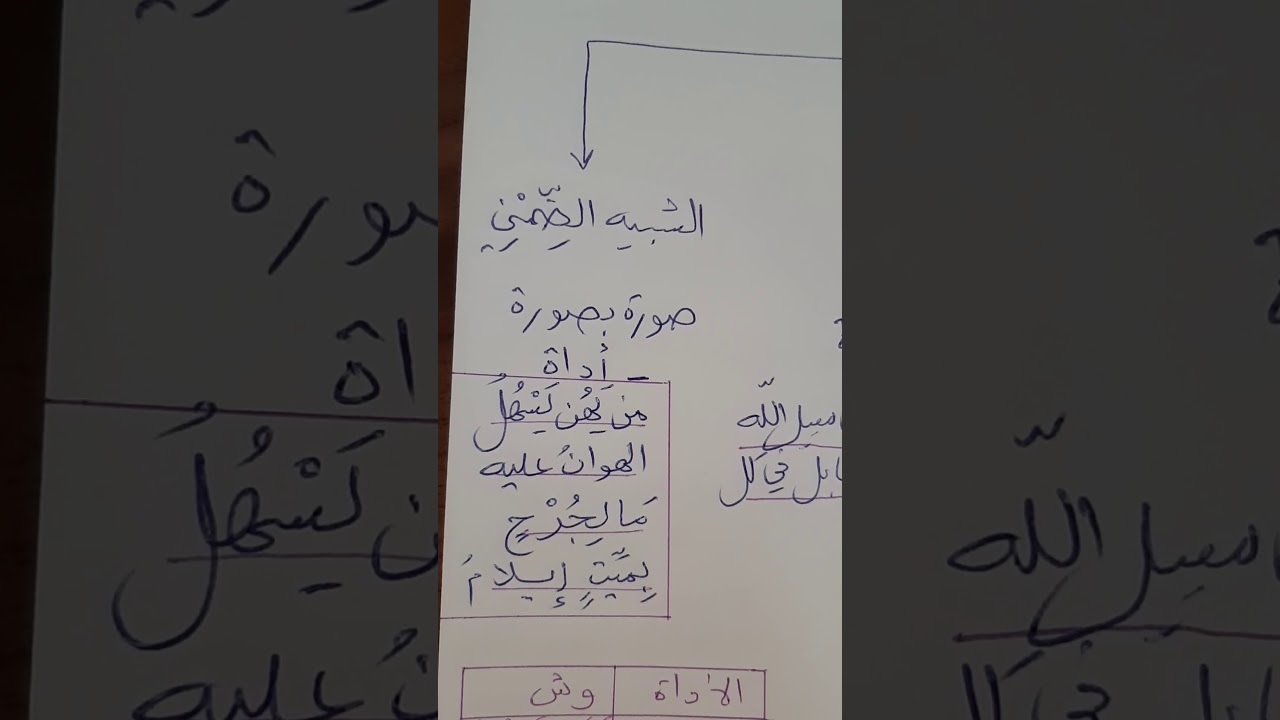 التشبيه الضِّمْنِي
صورة بصورة
- أداة
من يَهُن يَسْهُلُ
الهوانُ عليه
مَا لِجُرْحٍ
بِمَيِّتٍ إِيلامُ
سبيل الله
في كل
الأداة